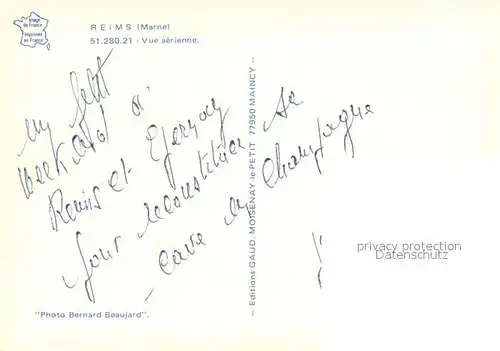 Image
de France
Imprimée
en France
REIMS (Marne)
51.280.21 - Vue aérienne.
un petit
week end à
Reims et Epernay
pour reconstituer sa
cave en Champagne
— Editions GAUD. MOISENAY-le-PETIT 77950 MAINCY —
privacy protection
Datenschutz
"Photo Bernard Beaujard".